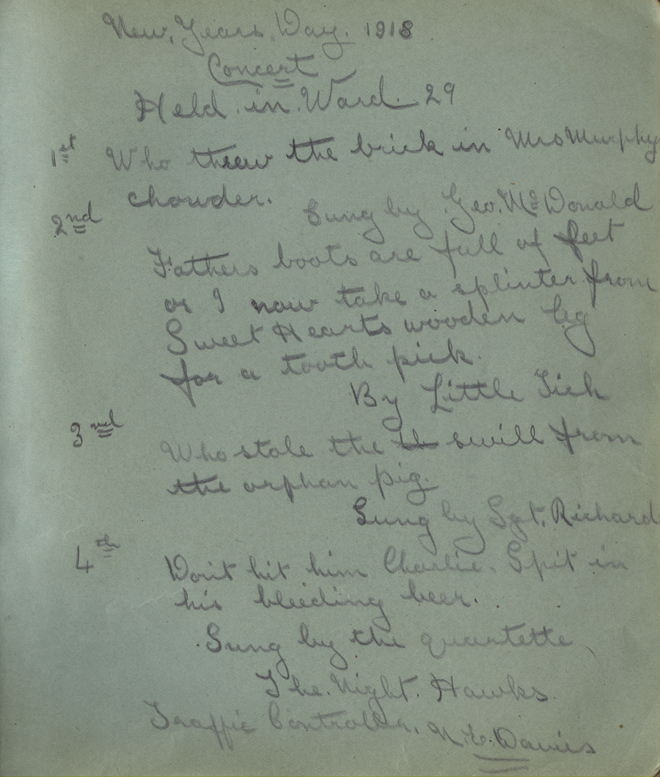 New, Years, Day. 1918
Concert
Held in Ward 29
1st Who threw the brick in Mrs Murphy
chowder.
Sung by Geo. McDonald
2nd
Fathers boots are full of feet
or I now take a splinter from
Sweet Hearts wooden leg
for a tooth pick.
By Little Tich
3rd
Who stole the swill from
the orphan pig.
Sung by Sgt. Richard
4th
Don't hit him Charlie. Spit in
his bleeding beer.
Sung by the quartette,
The Night Hawks.
Traffic Controller, Davies